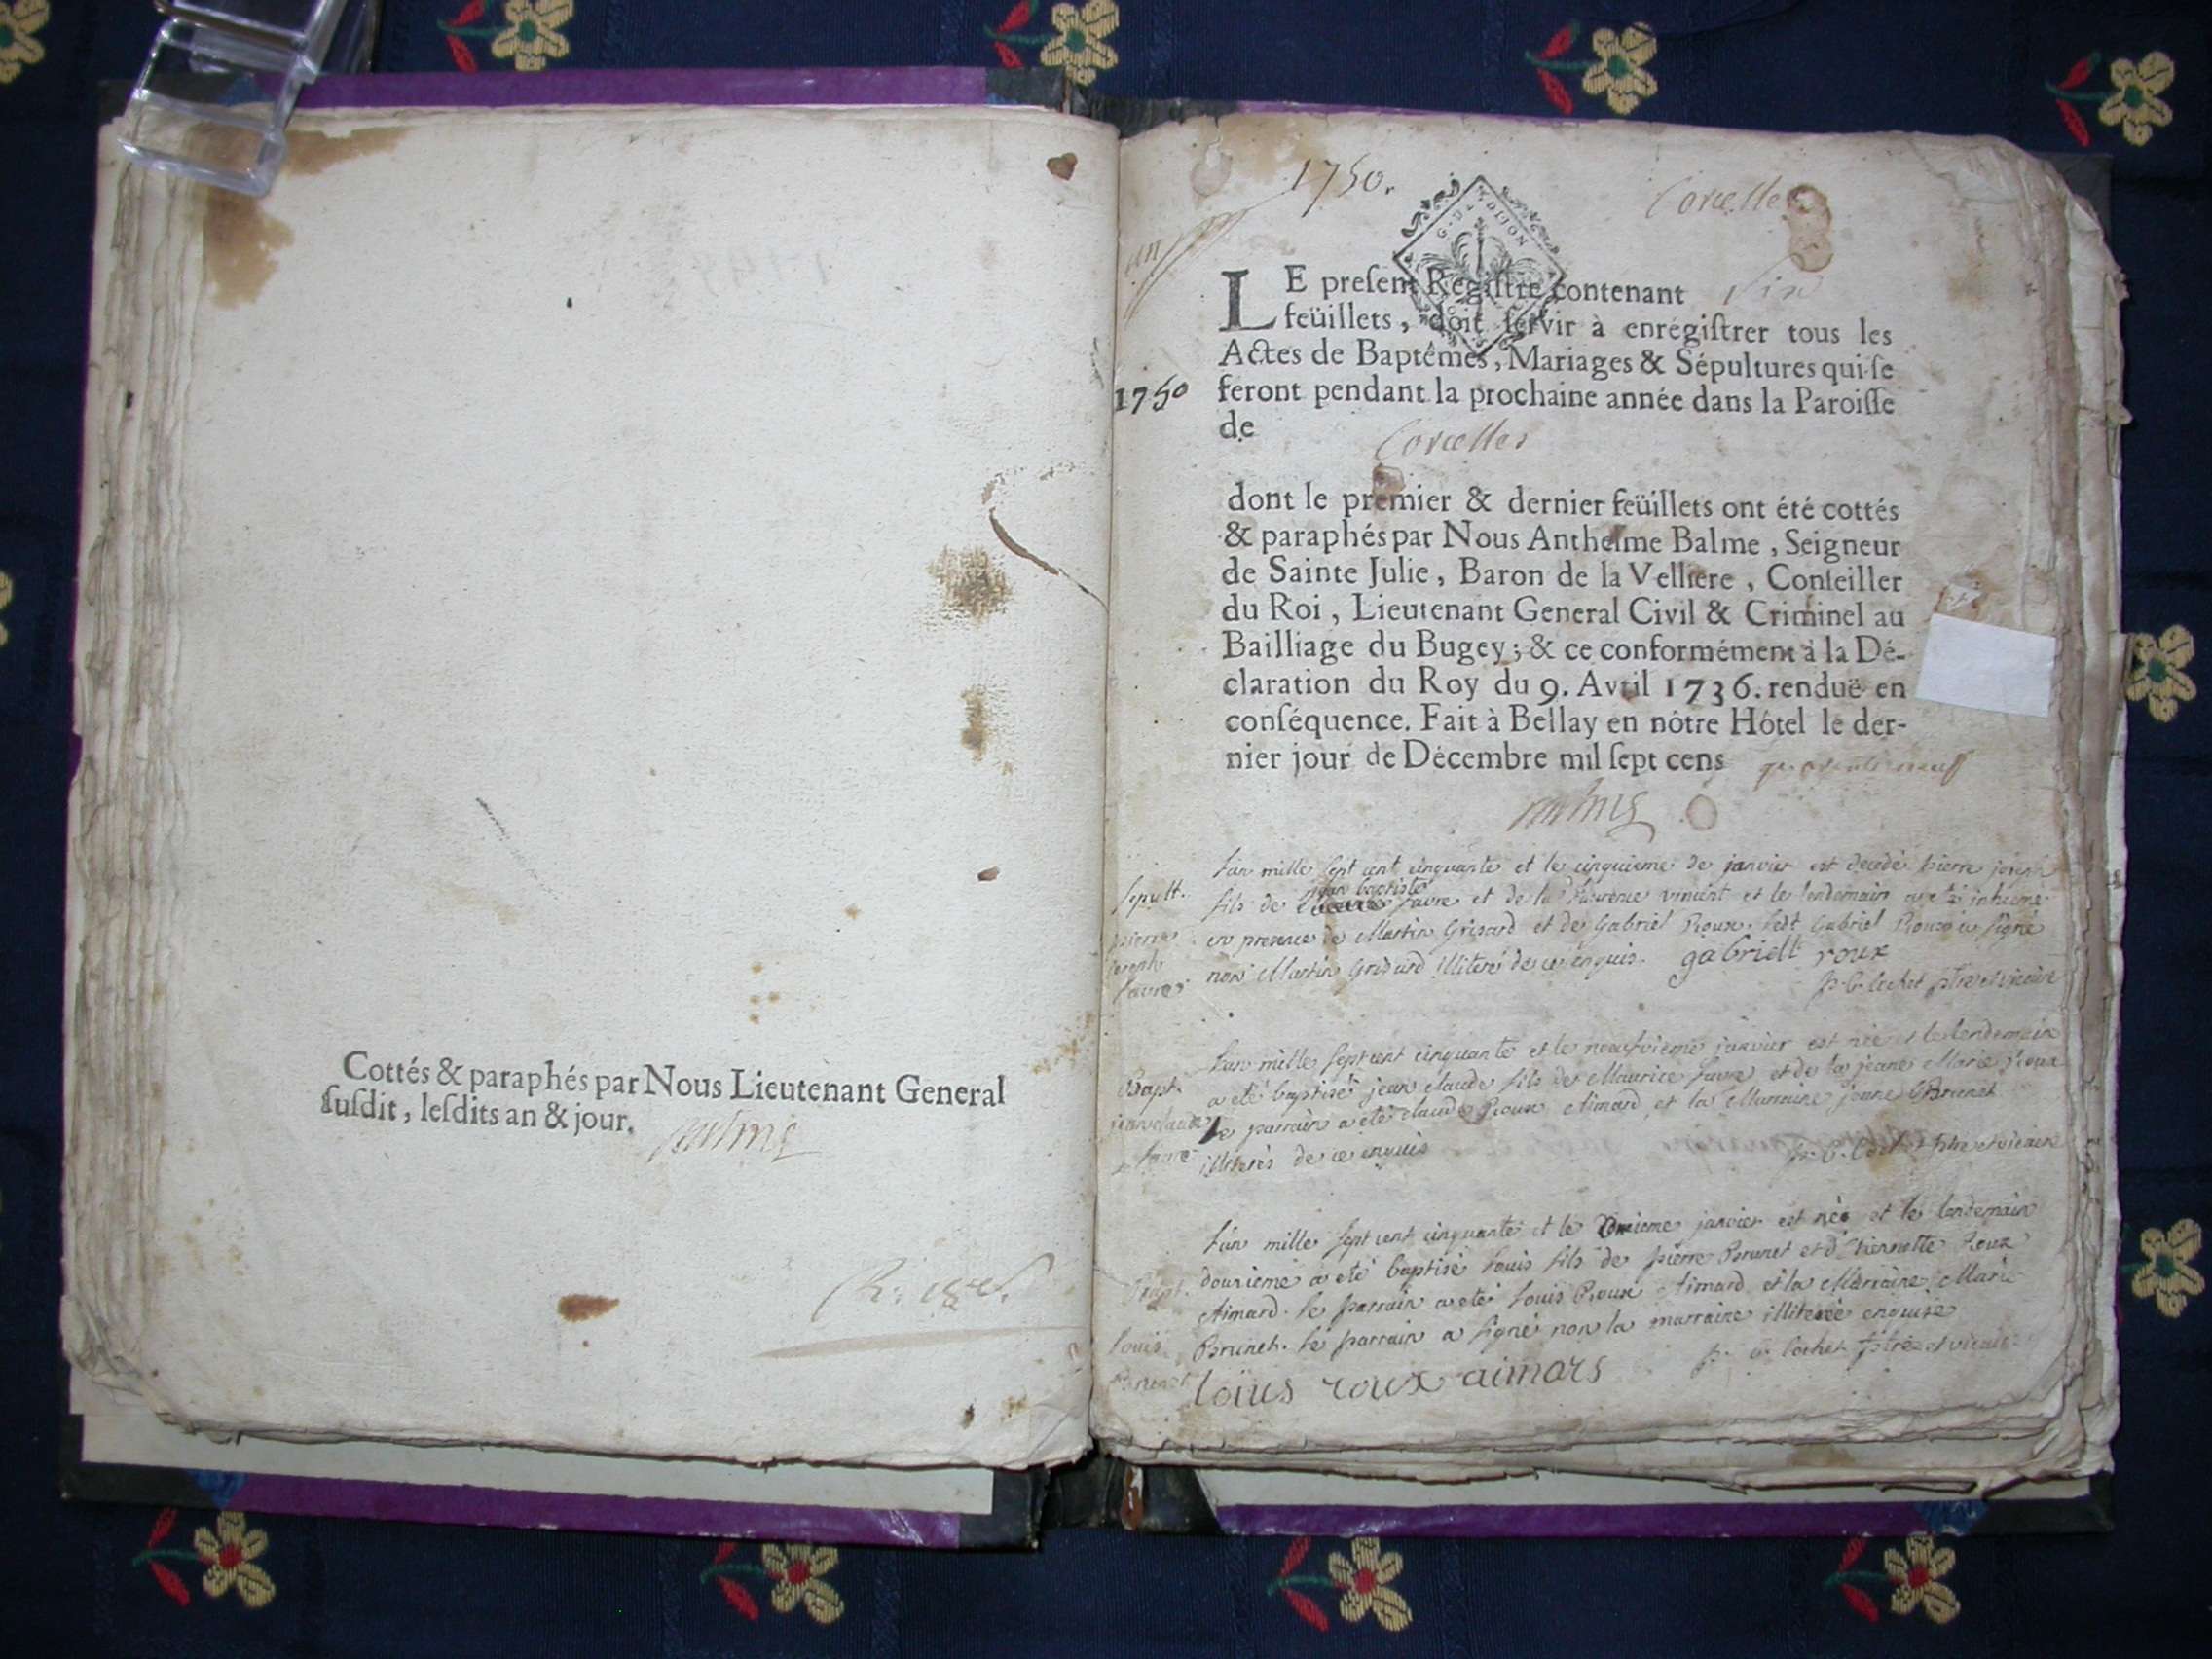 Cottés & paraphés par Nous Lieutenant General
susdit, lesdits an & jour.
1750.
Corcelles
G. DE DIJON
LE present Registre contenant six
feüillets, doit servir à enrégistrer tous les
Actes de Baptêmes, Mariages & Sépultures qui se
feront pendant la prochaine année dans la Paroisse
1750
de
Corcelles
dont le premier & dernier feüillets ont été cottés
& paraphés par Nous Anthelme Balme, Seigneur
de Sainte Julie, Baron de la Velliere, Conseiller
du Roi, Lieutenant General Civil & Criminel au
Bailliage du Bugey; & ce conformément à la Dé-
claration du Roy du 9. Avril 1736. renduë en
conséquence. Fait à Bellay en nôtre Hôtel le der-
nier jour de Décembre mil sept cens quarante neuf
Sepult.
pierre
joseph
favre
L'an mille sept cent cinquante et le cinquieme de janvier est decedé pierre joseph
fils de jean baptiste favre et de la laurence vincent et le lendemain a eté inhumé
en presence de Martin Grisard et de Gabriel Roux. ledt Gabriel Roux a signé
non Martin Grisard illiteré de ce enquis. gabriell roux
p. c. cochet ptre et vicaire
Bapt.
jean claude
favre
L'an mille sept cent cinquante et le neufvieme janvier est né et le lendemain
a eté baptisé jean claude fils de Maurice favre et de la jeane Marie Roux
le parrain a eté claude Roux Aimard et la Marraine jeane Brunet
illiterés de ce enquis
p. c. Cochet ptre et vicaire
Bapt.
louis
Brunet
L'an mille sept cent cinquante et le onzieme janvier est né et le lendemain
douzieme a eté baptisé louis fils de pierre Brunet et d'etiennette Roux
Aimard. le parrain a eté louis Roux Aimard et la Marraine Marie
Brunet. le parrain a signé non la marraine illiterée enquise
p. c. cochet ptre et vicaire
loüis roux aimars